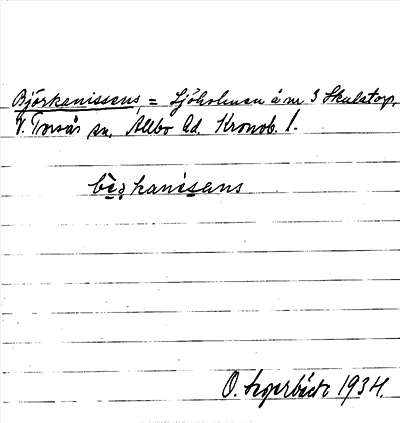 Björkanissens = Sjöholmen å nr 3 Skulatorp,
V. Torsås sn. Allbo hd. Kronob. l.
bèrkanisens
O. 1934.